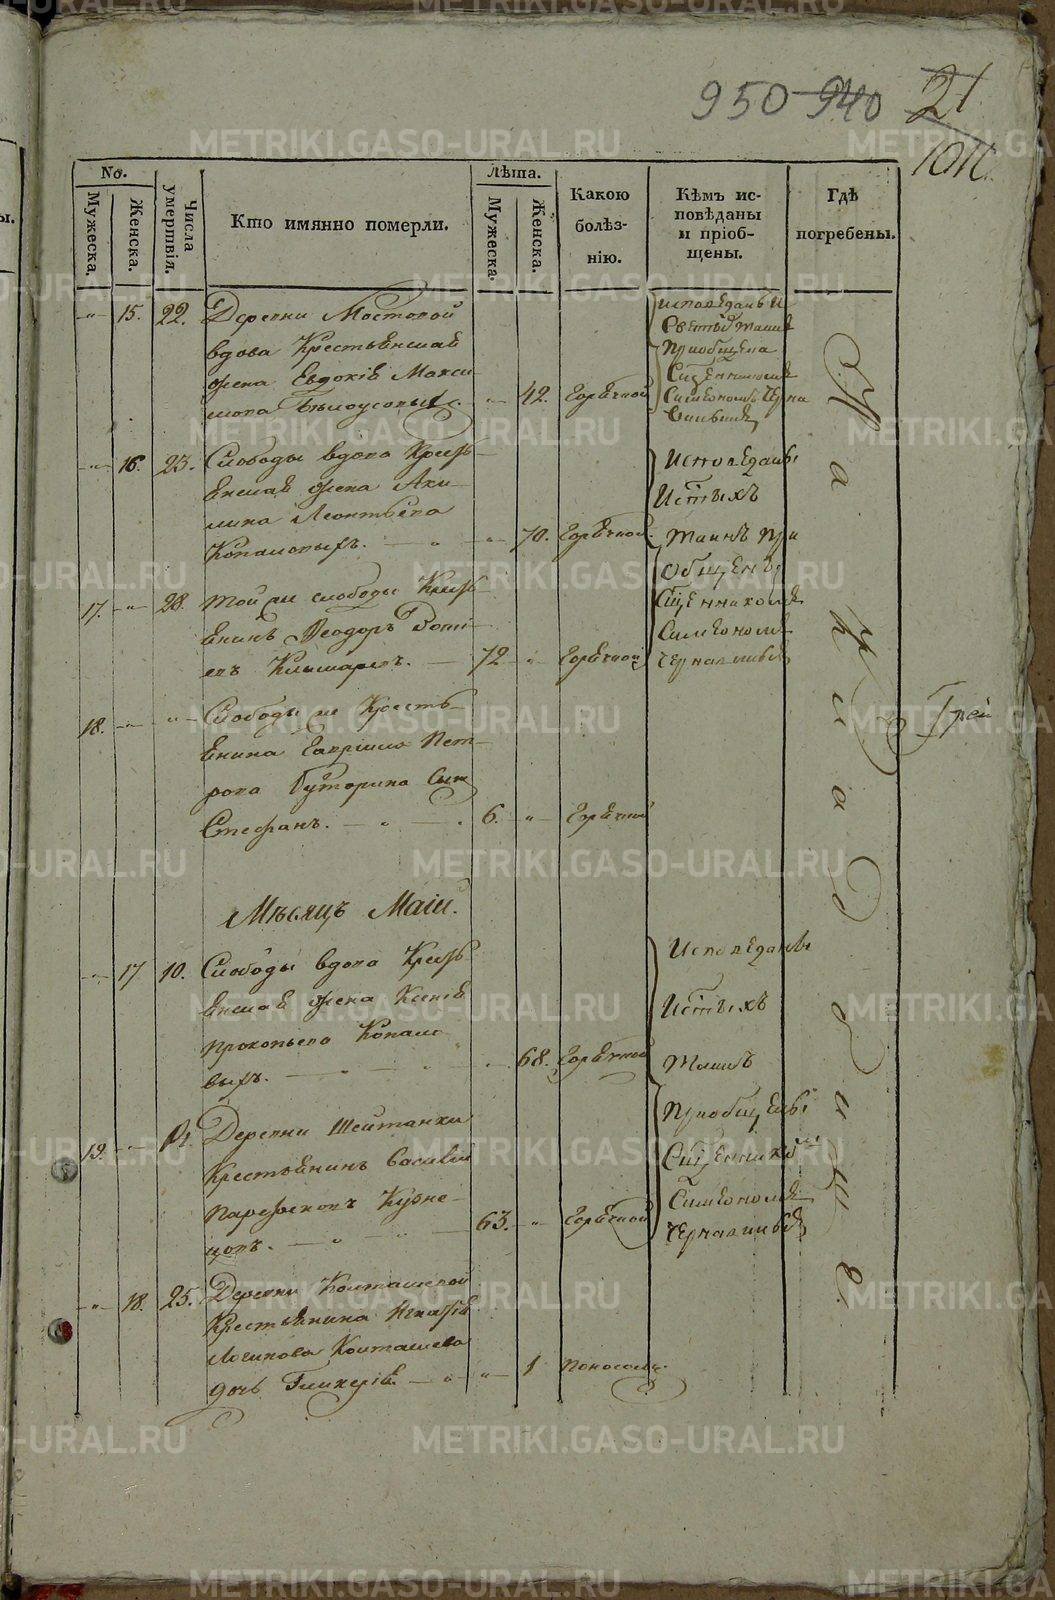 950 940 21
No.
Мужеска.
Женска.
Числа умертвія.
Кто имянно померли.
Лѣта.
Мужеска.
Женска.
Какою болѣз-нію.
Кѣмъ ис-повѣданы и пріоб-щены.
Гдѣ погребены.
15. 22. Деревни Мостовой
вдова Крестьянская
жена Евдокія Макси
мова Бѣлоусовыхъ 42. Горячкой
исповѣданы и
Святыхъ таинъ
Приобщена
Священникомъ
Симеономъ Черна
16. 23. Слободы вдова Кресть
янская жена Аки
лина Леонтьева
70. Горячкой.
Исповѣданы
И Стыхъ
Таинъ при
общены
Священникомъ
Симеономъ
17. 28. Той же слободы Кресть
янинъ Феодоръ
72 Горячкой
18. Слободы же Кресть
янина Гавріила Пет
рова Буторина сын
Стефанъ. 6. Горячкой
На кладбище.
Мѣсяцъ Маій.
17 10. Слободы вдова Кресть
янская жена Ксенія
Прокопьева
68. Горячкой
Исповѣданы
И Стыхъ
Таинъ
Приобщены
Священникомъ
Симеономъ
19. Деревни Шейтанки
Крестьянинъ Василій
Парфеновъ Кузне
цовъ. 63. Горячкой
18. 25. Деревни Колташевой
Крестьянина Игнатія
Логинова Колташева
дочь Гликерія. 1 Поносомъ.
METRIKI.GASO-URAL.RU